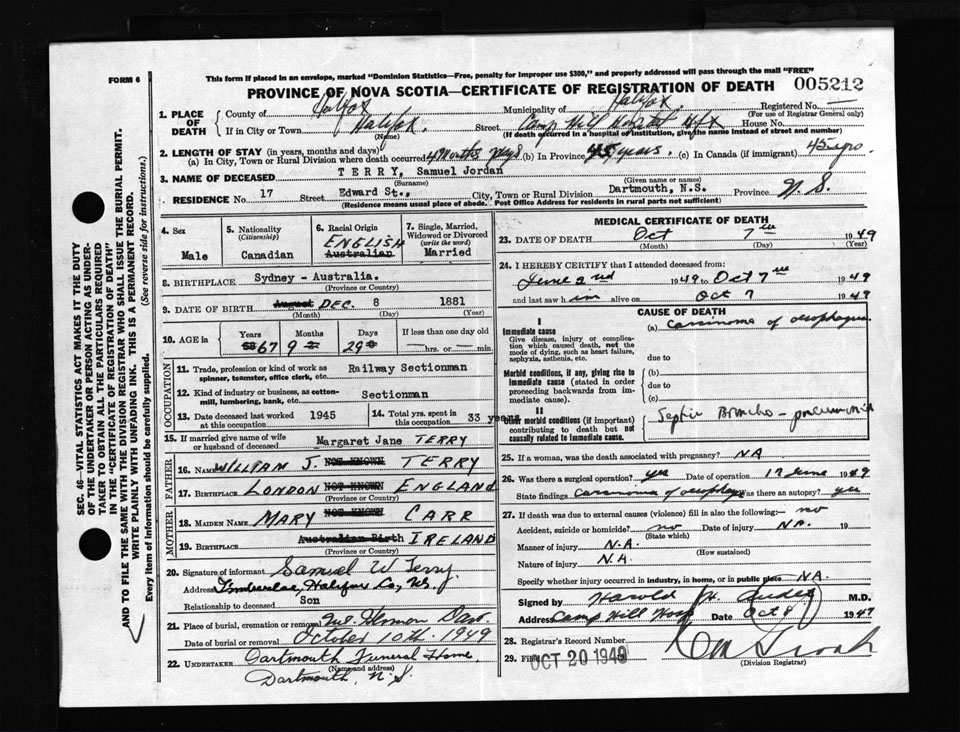 FORM 6
This form if placed in an envelope, marked "Dominion Statistics—Free, penalty for improper use $300," and properly addressed will pass through the mail "FREE"
PROVINCE OF NOVA SCOTIA—CERTIFICATE OF REGISTRATION OF DEATH 005212
1. PLACE OF DEATH
County of Halifax Municipality of Halifax. Registered No.
(For use of Registrar General only)
If in City or Town Halifax. Street Camp Hill Hospital Hfx House No.
(Name) (If death occurred in a hospital or institution, give the name instead of street and number)
2. LENGTH OF STAY (in years, months and days)
(a) In City, Town or Rural Division where death occurred 4 Months (b) In Province 45 years, (c) In Canada (if immigrant) 45 yrs.
3. NAME OF DECEASED TERRY, Samuel Jordan
(Surname) (Given name or names)
RESIDENCE No. 17 Street Edward St., City, Town or Rural Division Dartmouth, N.S. Province N.S.
(Residence means usual place of abode. Post Office Address for residents in rural parts not sufficient)
4. Sex
Male
5. Nationality
(Citizenship)
Canadian
6. Racial Origin
ENGLISH
Australian
7. Single, Married, Widowed or Divorced
(write the word)
Married
8. BIRTHPLACE Sydney - Australia.
(Province or Country)
9. DATE OF BIRTH August DEC. 8 1881
(Month) (Day) (Year)
10. AGE in Years Months Days If less than one day old
67 9 29 hrs. or min.
OCCUPATION
11. Trade, profession or kind of work as spinner, teamster, office clerk, etc. Railway Sectionman
12. Kind of industry or business, as cotton-mill, lumbering, bank, etc. Sectionman
13. Date deceased last worked at this occupation 1945
14. Total yrs. spent in this occupation 33 years
15. If married give name of wife or husband of deceased Margaret Jane TERRY
FATHER
16. Name WILLIAM J. NOT KNOWN TERRY
17. Birthplace LONDON NOT KNOWN ENGLAND
(Province or Country)
MOTHER
18. Maiden Name MARY NOT KNOWN CARR
19. Birthplace Australian Birth IRELAND
(Province or Country)
20. Signature of informant Samuel W Terry
Address Timberlea, Halifax Co, N.S.
Relationship to deceased Son
21. Place of burial, cremation or removal Mt. Hermon Dart
Date of burial or removal October 10th. 1949
22. UNDERTAKER Dartmouth Funeral Home,
(Name and address)
Dartmouth, N.S.
MEDICAL CERTIFICATE OF DEATH
23. DATE OF DEATH Oct 7th 1949
(Month) (Day) (Year)
24. I HEREBY CERTIFY that I attended deceased from:
June 2nd 1949 to Oct 7th 1949
and last saw him alive on Oct 7 1949
CAUSE OF DEATH
I
Immediate cause
Give disease, injury or complication which caused death, not the mode of dying, such as heart failure, asphyxia, asthenia, etc.
(a) Carcinoma of oesophagus
due to
Morbid conditions, if any, giving rise to immediate cause (stated in order proceeding backwards from immediate cause).
(b)
due to
(c)
II
Other morbid conditions (if important) contributing to death but not causally related to immediate cause.
Septic Broncho-pneumonia
25. If a woman, was the death associated with pregnancy? NA
26. Was there a surgical operation? yes Date of operation 17 June 1949
State findings Carcinoma of oesophagus Was there an autopsy? yes
27. If death was due to external causes (violence) fill in also the following:— no
Accident, suicide or homicide? no Date of injury NA. 19
(State which)
Manner of injury N.A.
(How sustained)
Nature of injury N.A.
Specify whether injury occurred in industry, in home, or in public place NA.
Signed by Harold M.D.
Address Camp Hill Hosp Date Oct 8 1949
28. Registrar's Record Number
29. Filed OCT 20 1949
(Division Registrar)
SEC. 46—VITAL STATISTICS ACT MAKES IT THE DUTY
OF THE UNDERTAKER OR PERSON ACTING AS UNDER-
TAKER TO OBTAIN ALL THE PARTICULARS REQUIRED
IN THE "CERTIFICATE OF REGISTRATION OF DEATH"
AND TO FILE THE SAME WITH THE DIVISION REGISTRAR WHO SHALL ISSUE THE BURIAL PERMIT.
WRITE PLAINLY WITH UNFADING INK. THIS IS A PERMANENT RECORD.
Every item of information should be carefully supplied. (See reverse side for instructions.)